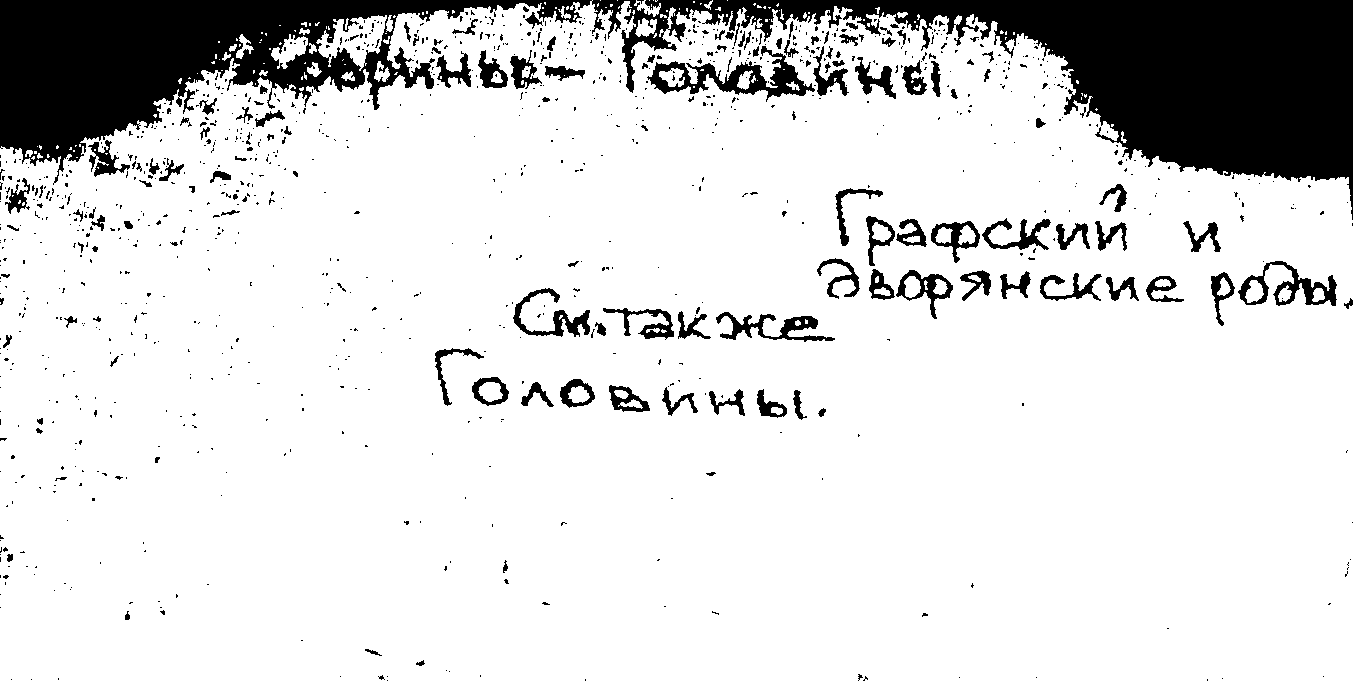 Ховрины – Головины.
Графский и
дворянские роды.
См. также
Головины.